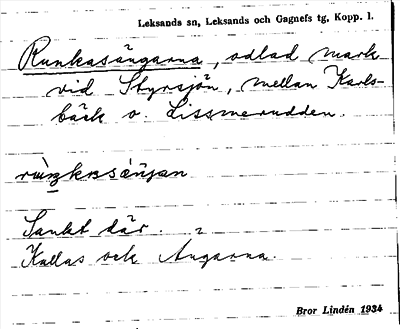 Leksands sn, Leksands och Gagnefs tg, Kopp. l.
Runkasängarna, odlad mark
vid Styrsjön, mellan Karls-
bäck o. Lissmerudden.
Sankt där.
Kallas och Angarna.
Bror Lindén 1934